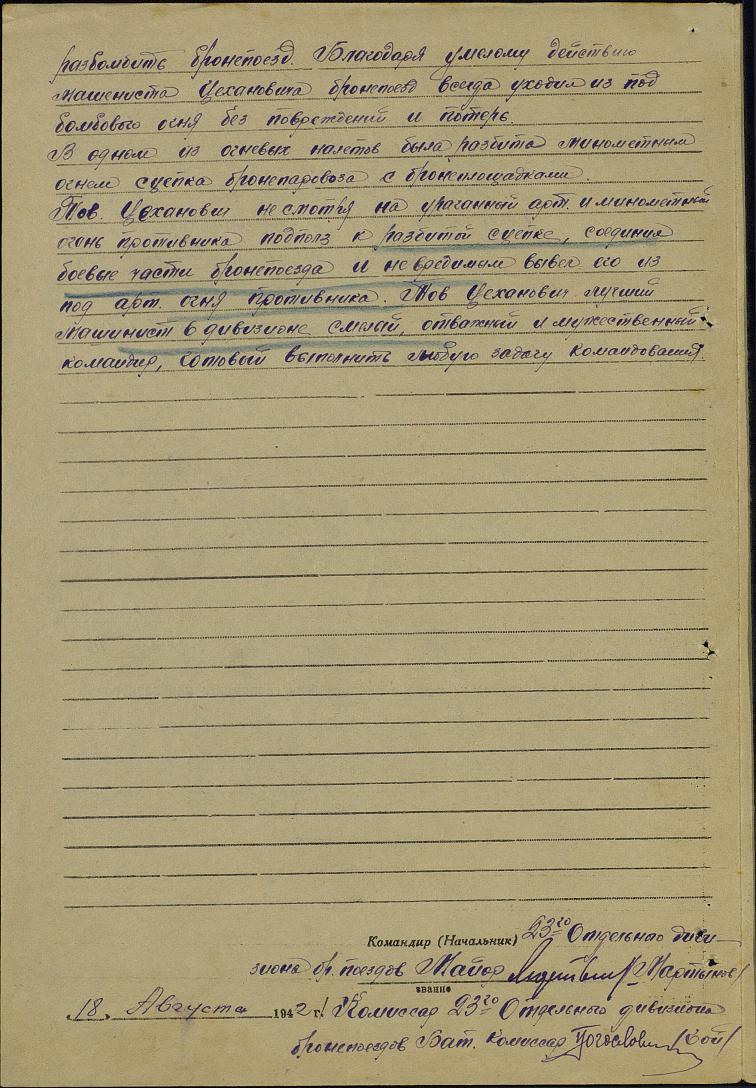 разбомбить бронепоезд. Благодаря умелому действию
машениста Цехановича бронепоезд всегда уходил из под
бомбового огня без повреждений и потерь.
В одном из огневых налетов была разбита минометным
огнем сцепка бронепаровоза с бронеплощадками.
Тов. Цеханович не смотря на ураганный арт. и минометный
огонь противника подполз к разбитой сцепке, соединил
боевые части бронепоезда и невредимым вывел его из
под арт. огня противника. Тов Цеханович лучший
машинист в дивизионе смелый, отважный и мужественный
командир, готовый выполнить любую задачу командования.
Командир (Начальник) 23го Отдельнаго диви-
зиона бр. поездов Майор /Мартынов/
звание
"18" Августа 1942 г. Комиссар 23го Отдельного дивизиона
бронепоездов Бат. Комиссар